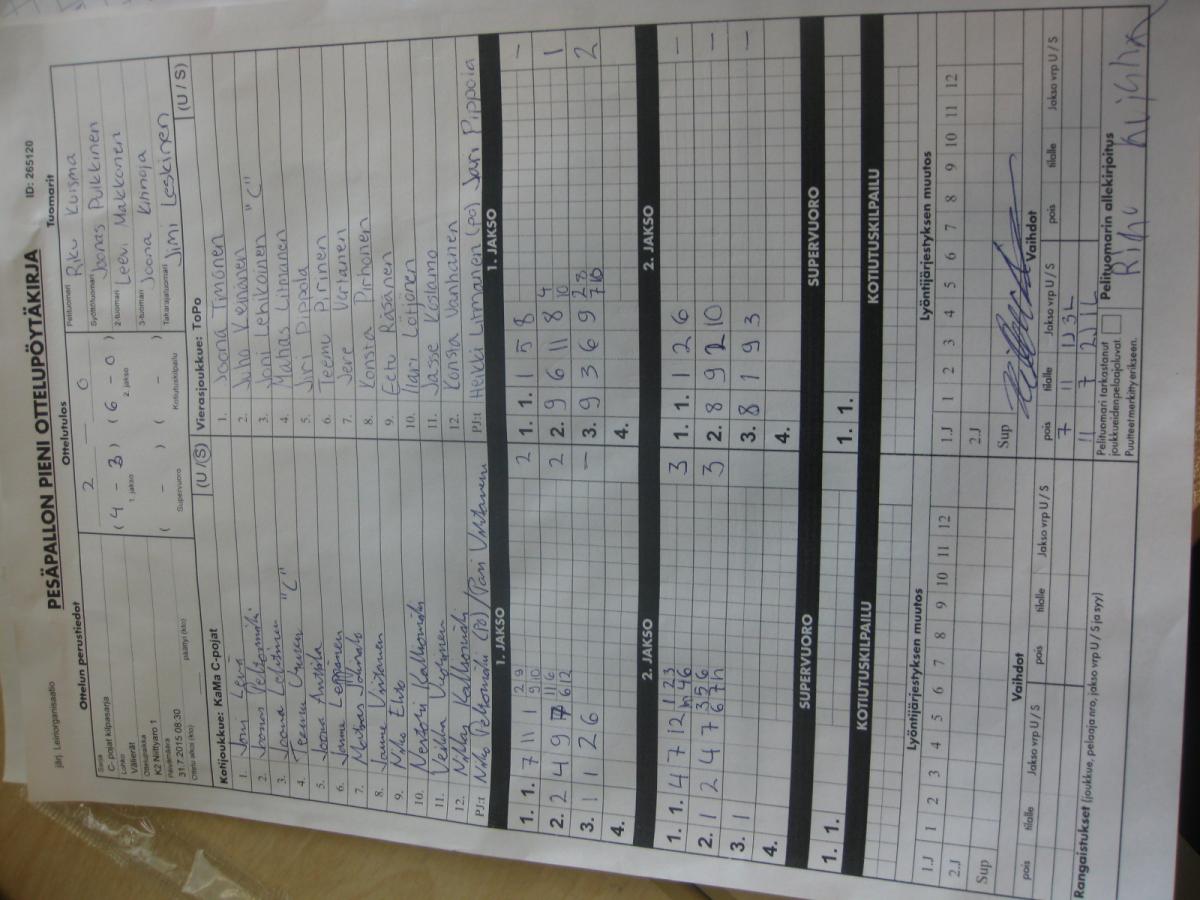 PESÄPALLON PIENI OTTELUPÖYTÄKIRJA
järj. Leiriorganisaatio
ID: 265120
Ottelun perustiedot
Sarja
C- pojat kilpasarja
Lohko
Välierät
Ottelupaikka
K2 Niittyaro 1
Päivämäärä
31.7.2015 08:30
Ottelu alkoi (klo)
päättyi (klo)
Ottelutulos
2 — 0
( 4 - 3 ) ( 6 - 0 )
1. jakso
2. jakso
( - ) ( - )
Supervuoro
Kotiutuskilpailu
Tuomarit
Pelituomari Riku Kuisma
Syöttötuomari Joonas Pulkkinen
2-tuomari Leevi Makkonen
3-tuomari Joona Kinnoja
Takarajatuomari Jimi Leskinen
Kotijoukkue: KaMa C-pojat
(U / S)
1. Joni Levä
2. Joonas Peltomäki
3. Joona Lehtinen "C"
4. Teemu
5. Joona Anttila
6. Janne Leppänen
7. Matias
8. Janne Virtanen
9. Niko Eluto
10. Nestori Kalliomäki
11. Veikka Vuorinen
12. Niklas Kalliomäki
PJ:t Niko Peltomäki (PJ) / Pasi Virtanen
Vierasjoukkue: ToPo
(U / S)
1. Joona Timonen
2. Juha Keinänen
3. Joni Lehikoinen "C"
4. Mahas Litmanen
5. Jiri Pippola
6. Teemu Pirinen
7. Jere Vartanen
8. Konsta Pirhonen
9. Eetu Räsänen
10. Ilari Löttjönen
11. Jasse Kostamo
12. Konsta Vanhanen
PJ:t Heikki Litmanen (PJ) Jari Pippola
1. JAKSO
1. 1. 7 11 1 2 9 10 2
2. 2 4 9 7 11 6 7 6 12 2
3. 1 1 2 6 –
4.
1. JAKSO
1. 1. 1 5 8 –
2. 9 6 11 8 4 10 1
3. 9 3 6 9 2 3 7 10 2
4.
2. JAKSO
1. 1. 4 7 12 1 2 3 4 6 3
2. 1 2 4 7 3 5 6 6 7 3
3. 1
4.
2. JAKSO
1. 1. 1 2 6 –
2. 8 9 2 10 –
3. 8 1 9 3 –
4.
SUPERVUORO
1. 1.
SUPERVUORO
1. 1.
KOTIUTUSKILPAILU
KOTIUTUSKILPAILU
Lyöntijärjestyksen muutos
1.J 1 2 3 4 5 6 7 8 9 10 11 12
2.J
Sup
Lyöntijärjestyksen muutos
1.J 1 2 3 4 5 6 7 8 9 10 11 12
2.J
Sup
Vaihdot
pois tilalle Jakso vrp U / S pois tilalle Jakso vrp U / S
Vaihdot
pois tilalle Jakso vrp U / S pois tilalle Jakso vrp U / S
7 11 1J 3L
11 7 2J 1L
Rangaistukset (joukkue, pelaaja nro, jakso vrp U / S ja syy)
Pelituomari tarkastanut
joukkueidenpelaajaluvat.
Puutteet merkitty erikseen.
Pelituomarin allekirjoitus